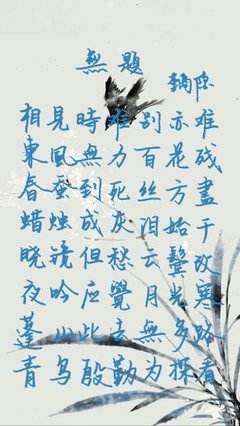 無題
相見時难别亦难
東風無力百花残
春蚕到死丝方盡
蜡烛成灰泪始干
晓镜但愁云鬓改
夜吟应覺月光寒
蓬山此去無多路
青鸟殷勤为探看